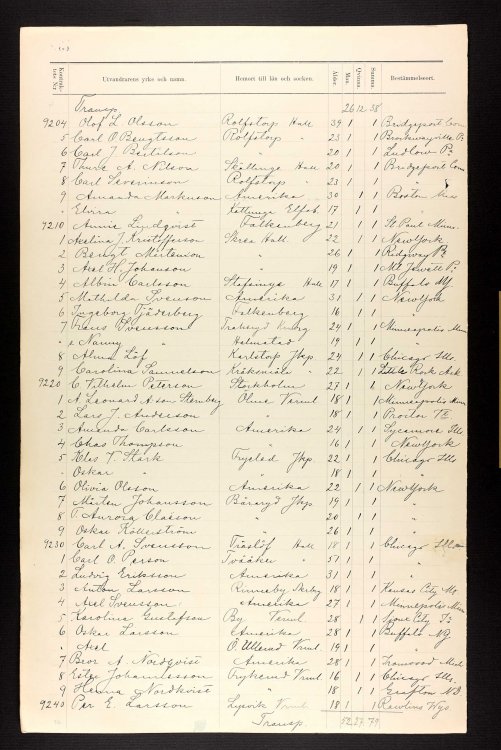 Kontrakts Nr.	Utvandrarens yrke och namn.	Hemort till län och socken.	Ålder.	Man.	Qvinna.	Summa.	Bestämmelseort.
Transp	26 12 38
9204 Olof L. Olsson	Rolfstorp Hall	39 1 1	Bridgeport Conn
5 Carl O Bengtsson	Rolfstorp "	23 1 1
6 Carl J Bertilson	"	20 1 1	Ludlow Pa
7 Thure A. Nilson	Hall	20 1 1	Bridgeport Conn
8 Carl Severinson	Rolfstorp "	23 1 1	"
9 Amanda Markuson	Amerika	30 1 1	Boston Mass
" Elvira "	17 1 1	"
9210 Annie Lundqvist	Falkenberg	21 1 1	St Paul Minn.
1 Axelina J Kristofferson	Skrea Hall.	22 1 1	New York
2 Bengt Mårtenson	"	26 1 1	Ridgway Pa
3 Axel H. Johanson	"	19 1 1	Mt Jewett Pa
4 Albin Carlsson	Stafsinge Hall	17 1 1	Buffalo NY
5 Mathilda Svenson	Amerika	31 1 1	New York
6 Ingeborg Tjäderberg	Falkenberg	16 1 1	"
7 Frans Svensson	24 1 1	Minneapolis Minn
" Nanny "	Halmstad	19 1 1	"
8 Alma Löf	Karlstorp Jkp	24 1 1	Chicago Ills
9 Carolina Samuelson	22 1 1	Little Rock Ark
9220 C. Vilhelm Peterson	Stockholm	27 1 1	New York
1 A Leonard A son Stenberg	Ölme Verml	18 1 1	Minneapolis Minn
2 Lars J. Anderson	"	18 1 1
3 Amanda Carlsson	Amerika	24 1 1	Sycamore Ills
4 Chas Thompson	"	16 1 1	New York
5 Klas V. Stark	Jkp	22 1 1	Chicago Ills
" Oskar "	"	18 1 1	"
6 Olivia Olsson	Amerika	22 1 1	New York
7 Mårten Johansson	Bäraryd Jkp	19 1 1	"
8 T Aurora Claeson	"	20 1 1	"
9 Oskar Källerström	"	26 1 1	"
9230 Carl A. Svensson	Hall	18 1 1	Chicago Ills
1 Carl O. Person	Tvååker "	57 1 1	"
2 Ludvig Eriksson	Amerika	31 1 1	"
3 Anton Larsson	18 1 1	Kansas City Mo.
4 Axel Svensson	Amerika	27 1 1	Minneapolis Minn
5 Karolina Gustafson	By Verml	28 1 1
6 Oskar Larsson	Amerika	28 1 1	Buffalo NY
" Axel "	Ö. Ullerud Vrml	19 1 1	"
7 Bror A. Nordqvist	Amerika	28 1 1	Ironwood Mich
8 Ester Johannesson	Fryksend Vrml	16 1 1	Chicago Ills.
9 Hanna Nordkvist	"	18 1 1	Grafton ND
9240 Per E. Larsson	Lysvik Vrml	18 1 1	Rawlins Wyo.
Transp.	52 27 79